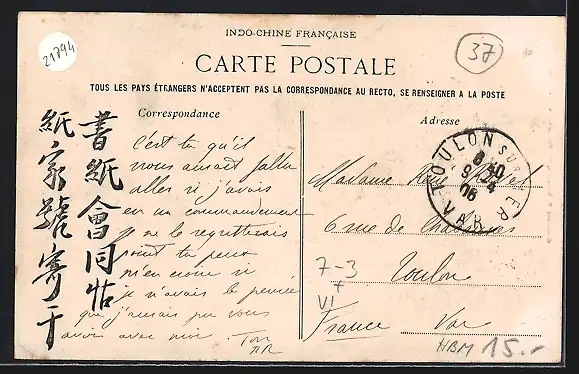 21794
INDO-CHINE FRANÇAISE
37
CARTE POSTALE
TOUS LES PAYS ÉTRANGERS N'ACCEPTENT PAS LA CORRESPONDANCE AU RECTO, SE RENSEIGNER A LA POSTE
Correspondance
書紙會同
紙家號寄
C'est là qu'il
nous aurait fallu
aller si j'avais
eu un commandement
je ne le regretterais
point tu peux
m'en croire si
je n'avais la pensée
que j'aurais pu vous
avoir avec moi. Ton
Adresse
TOULON SUR MER
9 4
06
VAR
Madame
6 rue de
Toulon
France Var
7-3
+
VI
HBM 15.-